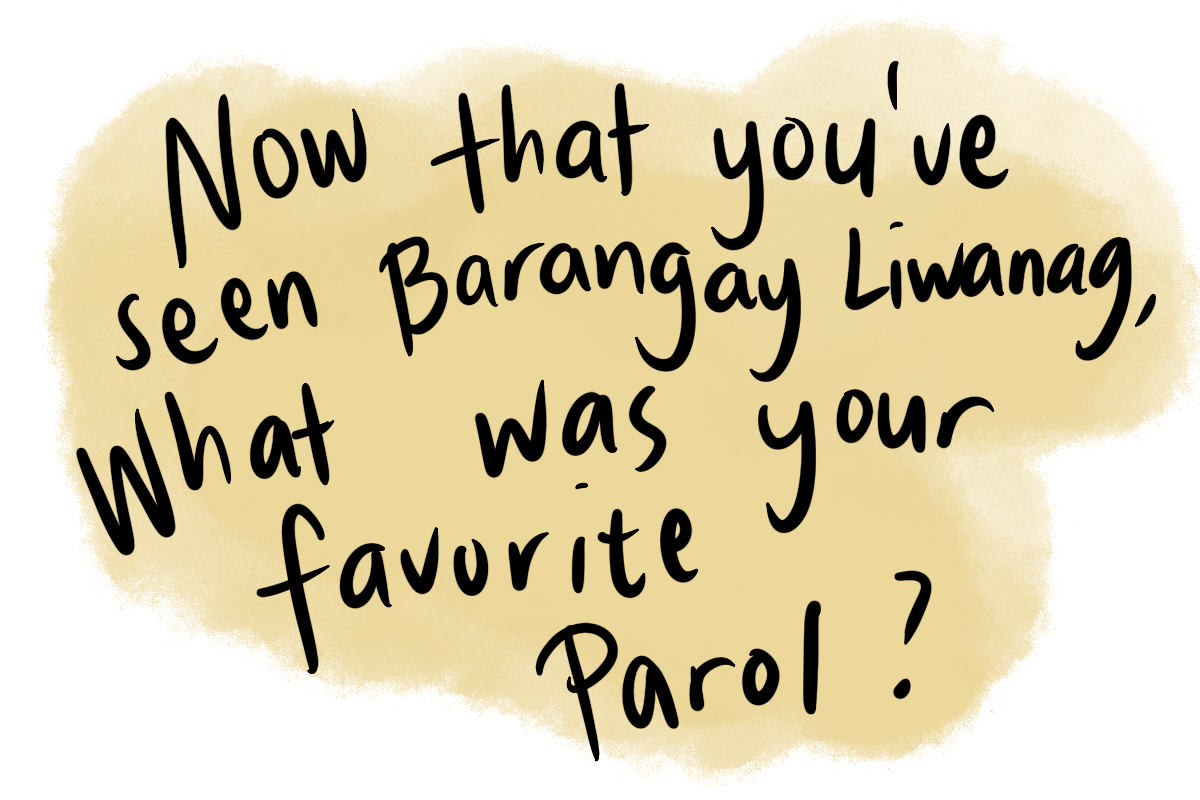 Now that you've
seen Barangay Liwanag,
What was your
favorite
Parol?